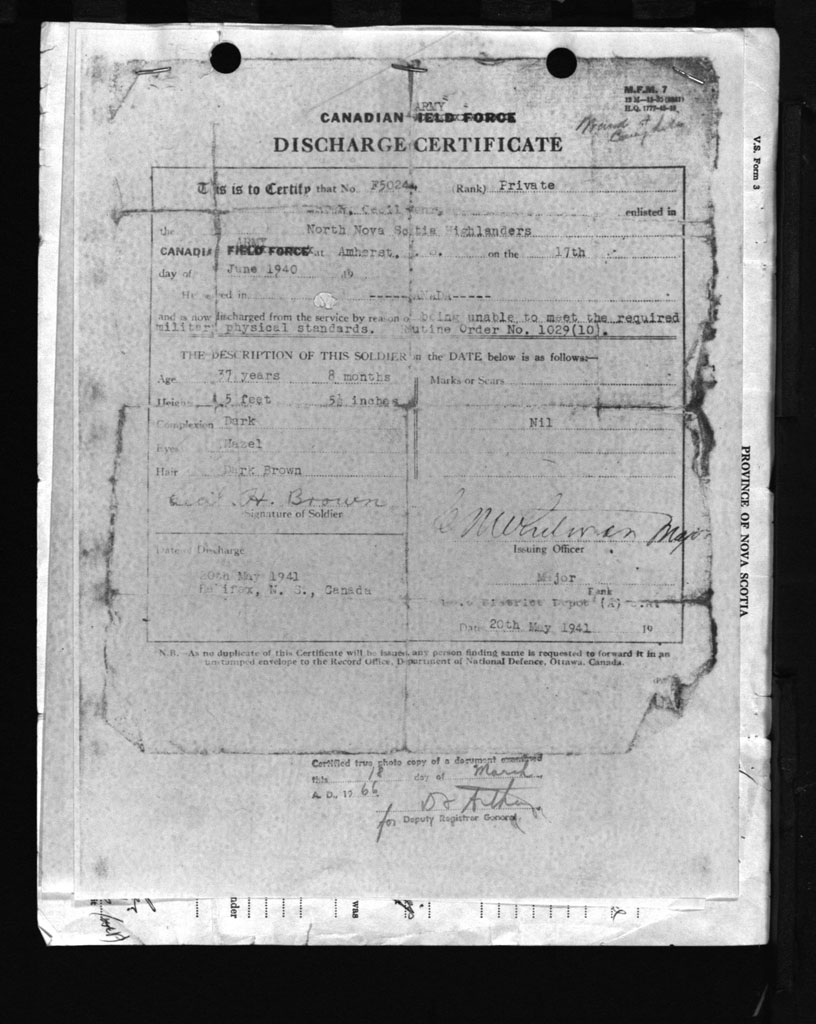 M.F.M. 7
ARMY
CANADIAN FIELD FORCE
DISCHARGE CERTIFICATE
This is to Certify that No. F5024 (Rank) Private
enlisted in
the North Nova Scotia Highlanders
ARMY
CANADIAN FIELD FORCE at Amherst, . S. on the 17th
day of June 1940 19
He served in -----CANADA-----
and is now discharged from the service by reason of being unable to meet the required
military physical standards. Routine Order No. 1029(10).
THE DESCRIPTION OF THIS SOLDIER on the DATE below is as follows:—
Age 37 years 8 months
Marks or Scars
Height 5 feet 5½ inches
Complexion Dark
Nil
Eyes Hazel
Hair Dark Brown
H. Brown
Signature of Soldier
Major
Issuing Officer
Date of Discharge
20th May 1941
Halifax, N. S., Canada
Major
Rank
District Depot (A)
Date 20th May 1941 19
N.B.—As no duplicate of this Certificate will be issued, any person finding same is requested to forward it in an
unstamped envelope to the Record Office, Department of National Defence, Ottawa, Canada.
Certified true photo copy of a document examined
this 18 day of March
A. D. 19 66
for Deputy Registrar General.
V.S. Form 3
PROVINCE OF NOVA SCOTIA
was
nder